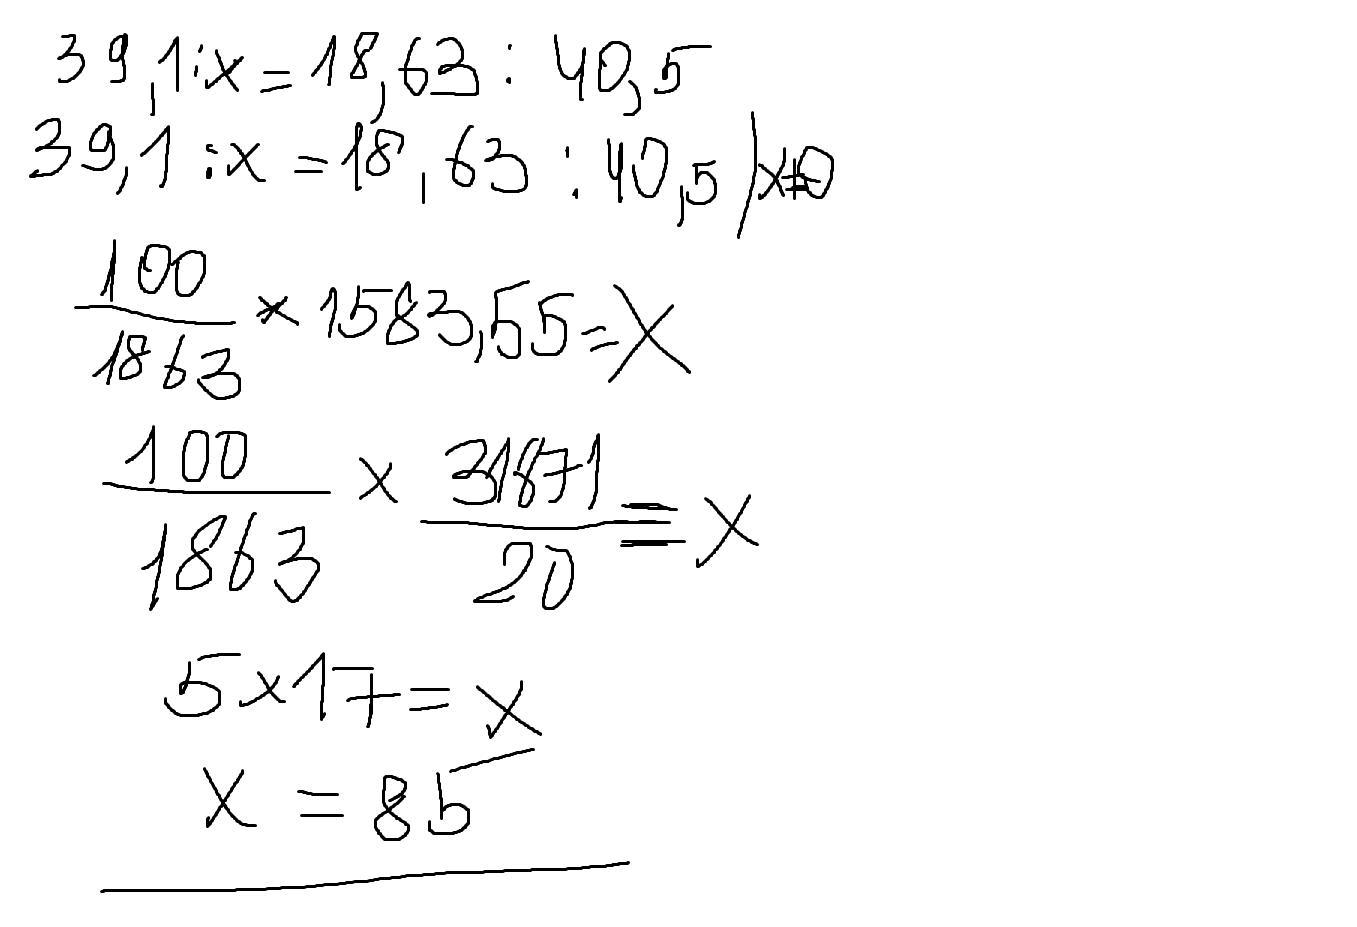 39,1:x=18,63:40,5
39,1:x=18,63:40,5|x10
100/1863 × 1583,55=x
100/1863 × 31671/20=x
5×17=x
x=85